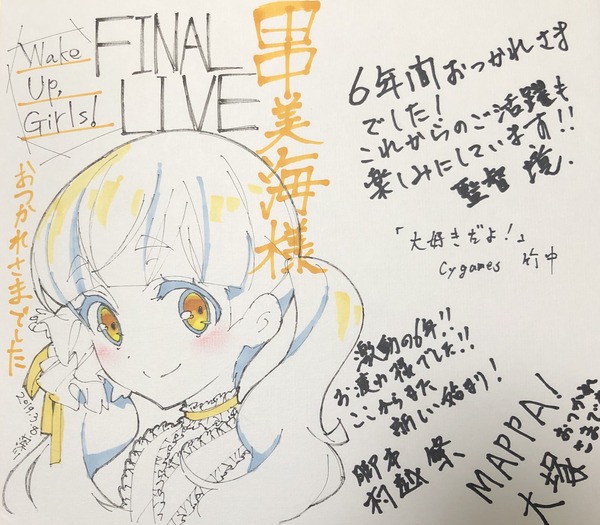 Wake
Up,
Girls!
FINAL
LIVE
田中美海様
おつかれさまでした
2019.3.8
6年間おつかれさま
でした!
これからのご活躍も
楽しみにしています!!
監督 境.
「大好きだよ!」
Cygames 竹中
激動の6年!!
お疲れ様でした!!
ここからまた
新しい始まり!
脚本
村越 繁
MAPPA!
大塚
おつかれ
さまです